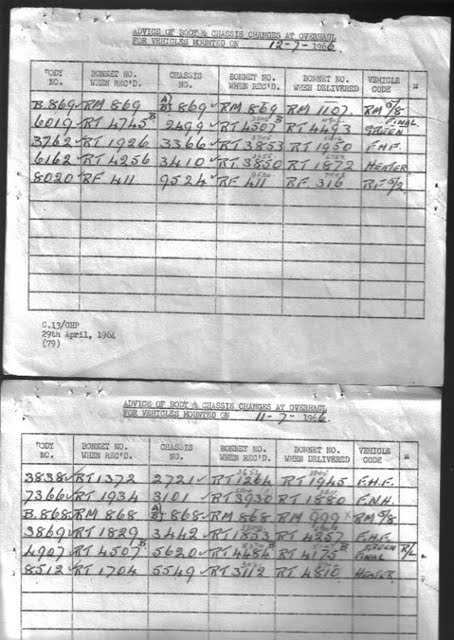 ADVICE OF BODY & CHASSIS CHANGES AT OVERHAUL
FOR VEHICLES MOUNTED ON 12-7-1966
BODY NO. BONNET NO. WHEN REC'D. CHASSIS NO. BONNET NO. WHEN REC'D. BONNET NO. WHEN DELIVERED VEHICLE CODE
B.869 ✓ RM 869 A) B) 869 ✓ RM 869 RM 1107. RM 5/8
6019 ✓ RT 4745 B 2499 ✓ RT 4507 B RT 4493 FINAL GREEN
3762 ✓ RT 1926 3366 ✓ RT 3853 RT 1950 F.H.F.
6162 ✓ RT 4256 3410 ✓ RT 3850 RT 1872 HEATER
8020 ✓ RF 411 9524 ✓ RF 411 RF 316 RF 5/2
C.13/CHP
29th April, 1964
(79)
ADVICE OF BODY & CHASSIS CHANGES AT OVERHAUL
FOR VEHICLES MOUNTED ON 11-7-1966
BODY NO. BONNET NO. WHEN REC'D. CHASSIS NO. BONNET NO. WHEN REC'D. BONNET NO. WHEN DELIVERED VEHICLE CODE
3838 ✓ RT 1372 2721 ✓ RT 1264 RT 1945 F.H.F.
7366 ✓ RT 1934 3101 ✓ RT 3930 RT 1880 F.N.H.
B.868 ✓ RM 868 A) B) 868 ✓ RM 868 RM 999 x RM 5/8
3869 ✓ RT 1829 3442 ✓ RT 1853 RT 4257 F.H.F.
4907 ✓ RT 4507 B 5620 ✓ RT 4484 B RT 4175 B GREEN R/L FINAL
8512 ✓ RT 1704 5549 ✓ RT 3112 RT 4810 HEATER